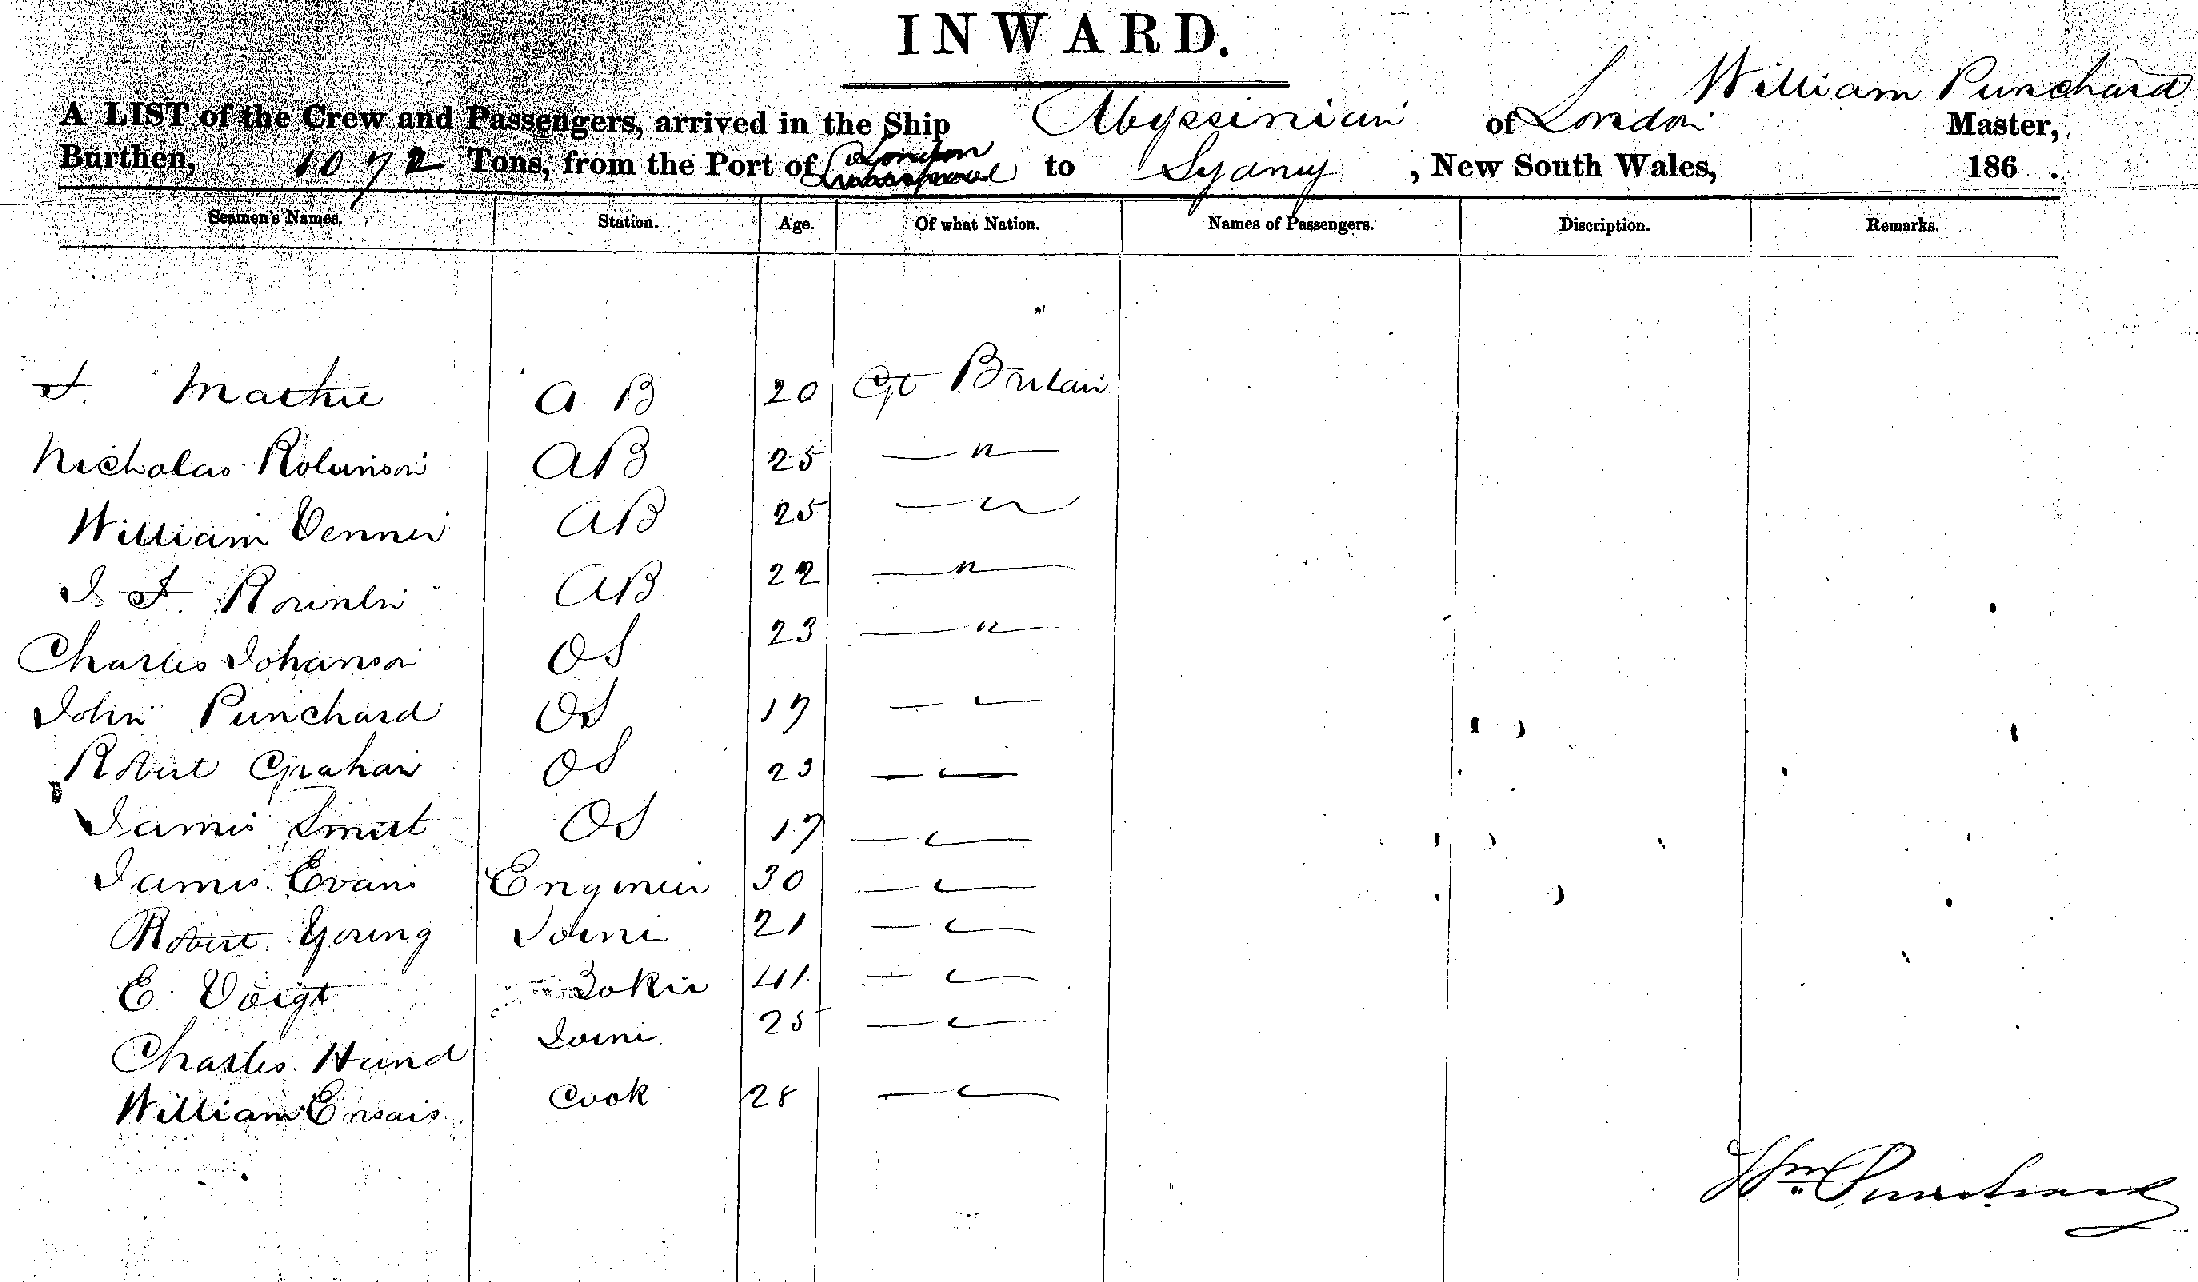 INWARD.
William Punchard
A LIST of the Crew and Passengers, arrived in the Ship Abyssinian of London Master,
Burthen, 1072 Tons, from the Port of London to Sydney, New South Wales, 186 .
Seamen's Names. Station. Age. Of what Nation. Names of Passengers. Discription. Remarks.
A B 20 Gt Britain
Nicholas Robinson AB 25 — " —
William Venner AB 25 — " —
AB 22 — " —
Charles Johanson OS 23 — " —
John Punchard OS 17 — " —
Robert Graham OS 23 — " —
James OS 17 — " —
James Evans Engineer 30 — " —
Robert Young Joiner 21 — " —
E. Voigt 41 — " —
Charles Hund Joiner 25 — " —
William Cook 28 — " —
Wm. Punchard